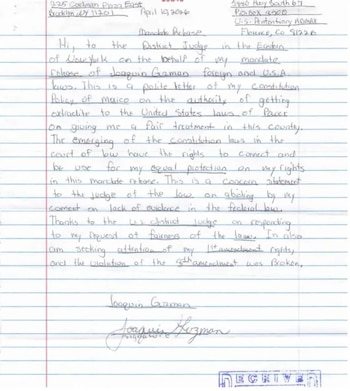 225 Cadman Plaza East
Brooklyn NY 11201 April 10, 2026
5880 Hwy South 67
PO BOX 8500
U.S. Penitentiary ADMAX
Florence, Co 81226
Mandate Release
Hi, to the District Judge in the Eastern
of New York on the behalf of my mandate
release of Joaquin Guzman foreign and U.S.A.
laws. This is a polite letter of my constitution
Policy of on the authority of getting
extradite to the United States laws of
on giving me a fair treatment in this county.
The emerging of the constitution laws in the
court of law have the rights to connect and
be use for my equal protection on my rights
in this mandate release. This is a concern statement
to the judge of the law on abiding by my
comment on lack of evidence in the federal law.
Thanks to the U.S district Judge on responding
to my request of fairness of the law. In also
am seeking attention of my 1st amendment rights,
and the violation of the amendment was broken.
Joaquin Guzman
Joaquin Guzman
RECEIVED